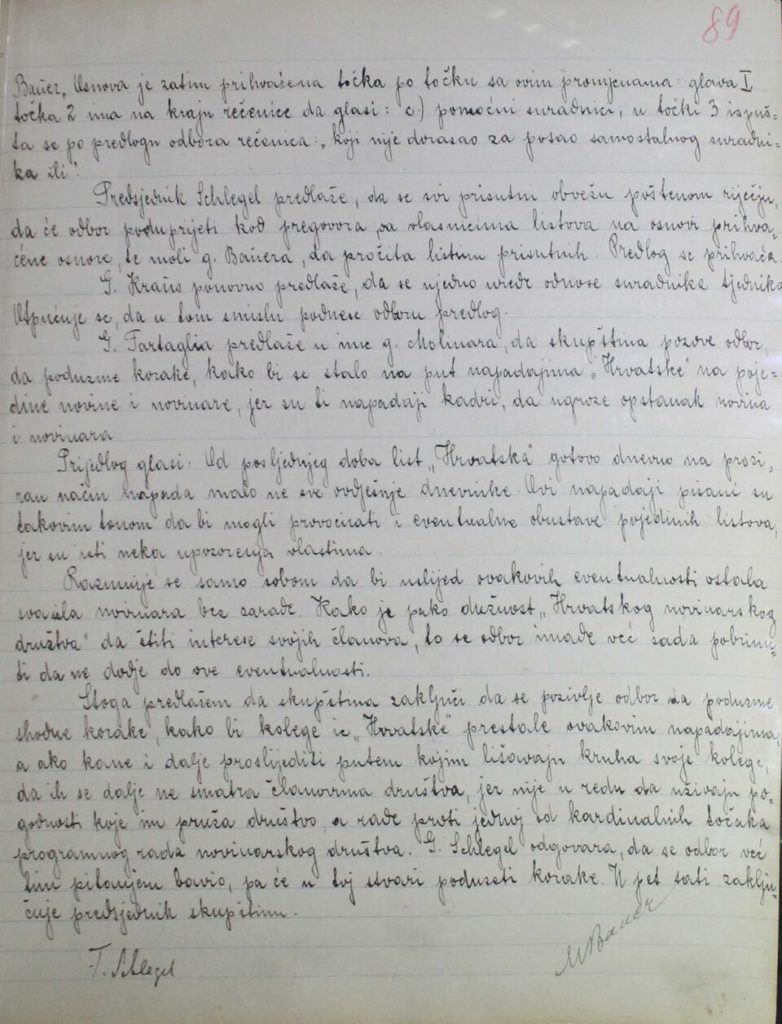 89
Bauer, Osnova je zatim prihvaćena točka po točku sa ovim promjenama: glava I
točka 2 ima na kraju rečenice da glasi: c) pomoćni suradnici; u točki 3 ispuš-
ta se po predlogu odbora rečenica: „koji nije dorasao za posao samostalnog suradni-
ka ili".
Predsjednik Schlegel predlaže, da se svi prisutni obvežu poštenom riječju,
da će odbor poduprijeti kod pregovora sa vlasnicima listova na osnovi prihva-
ćene osnove, te moli g. Bauera, da pročita listinu prisutnih. Predlog se prihvaća.
G. Kraus ponovno predlaže, da se ujedno urede odnose suradnika tjednika
Utpućuje se, da u tom smislu podnese odboru predlog.
G. Tartaglia predlaže u ime g. Molinara, da skupština pozove odbor,
da poduzme korake, kako bi se stalo na put napadajima „Hrvatske" na poje-
dine novine i novinare, jer su ti napadaji kadri, da ugroze opstanak novina
i novinara
Prijedlog glasi: Od posljednjeg doba list „Hrvatska" gotovo dnevno na prozi-
ran način napada malo ne sve ovdješnje dnevnike. Ovi napadaji pisani su
takovim tonom da bi mogli provocirati i eventualne obustave pojedinih listova,
jer su isti neka upozorenja vlastima.
Razumije se samo sobom da bi uslijed ovakovih eventualnosti ostala
svasila novinara bez zarade. Kako je pako dužnost „Hrvatskog novinarskog
društva" da štiti interese svojih članova, to se odbor imade već sada pobrinu-
ti da ne dodje do ove eventualnosti.
Stoga predlažem da skupština zaključi da se pozivlje odbor da poduzme
shodne korake, kako bi kolege iz „Hrvatske" prestale ovakovim napadajima,
a ako kane i dalje proslijediti putem kojim lišavaju kruha svoje kolege,
da ih se dalje ne smatra članovima društva, jer nije u redu da uživaju po-
godnosti koje im pruža društvo, a rade proti jednoj od kardinalnih točaka
programnog rada novinarskog društva. G. Schlegel odgovara, da se odbor već
tim pitanjem bavio, pa će u toj stvari poduzeti korake. U pet sati zaklju-
čuje predsjednik skupštinu.
T. Schlegel
MBauer